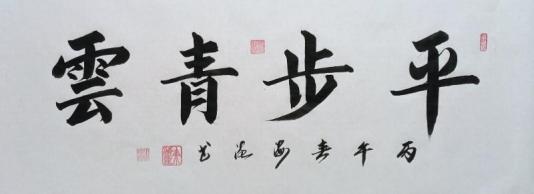 平步青雲
丙午春